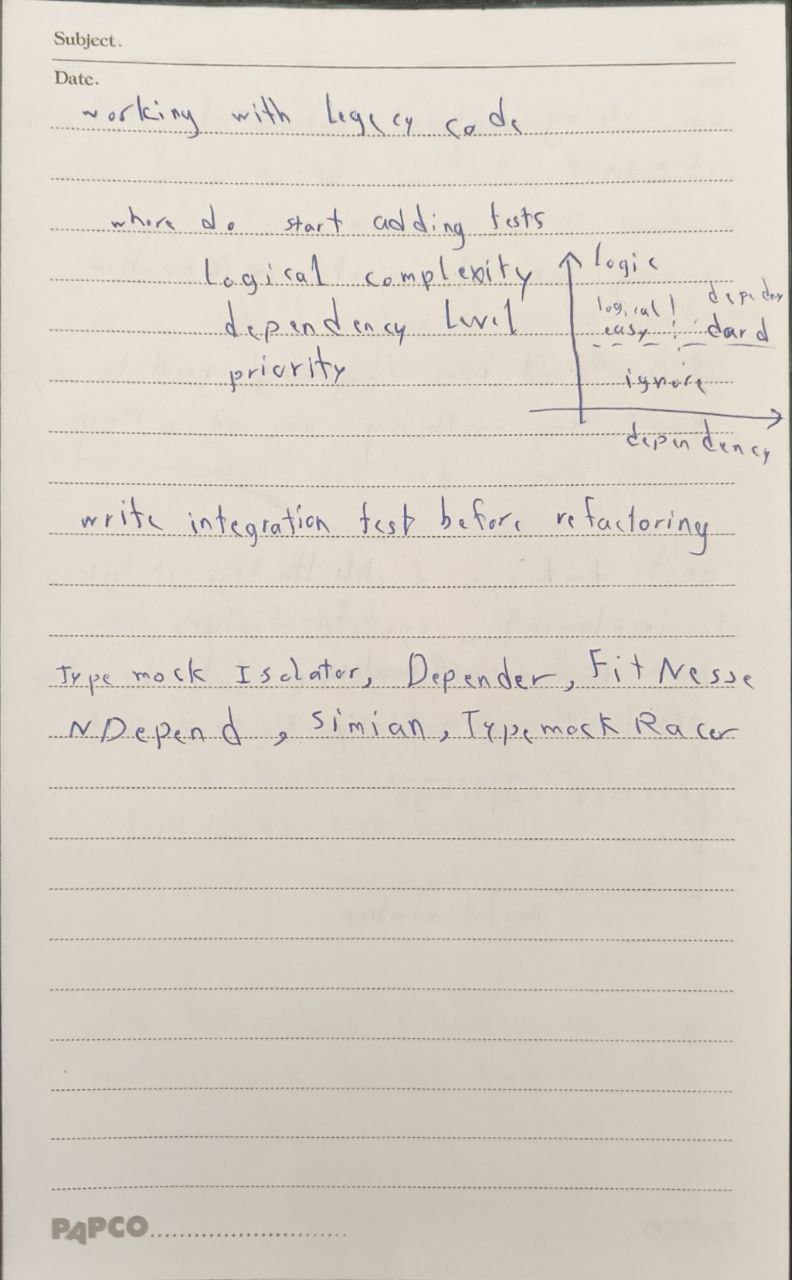 Subject.
Date.
working with legacy code
where do start adding tests
logical complexity
dependency level
priority
logic
logical
easy
dard
ignore
dependency
write integration test before refactoring
Typemock Isolator, Depender, FitNesse
NDepend, Simian, Typemock Racer
PAPCO